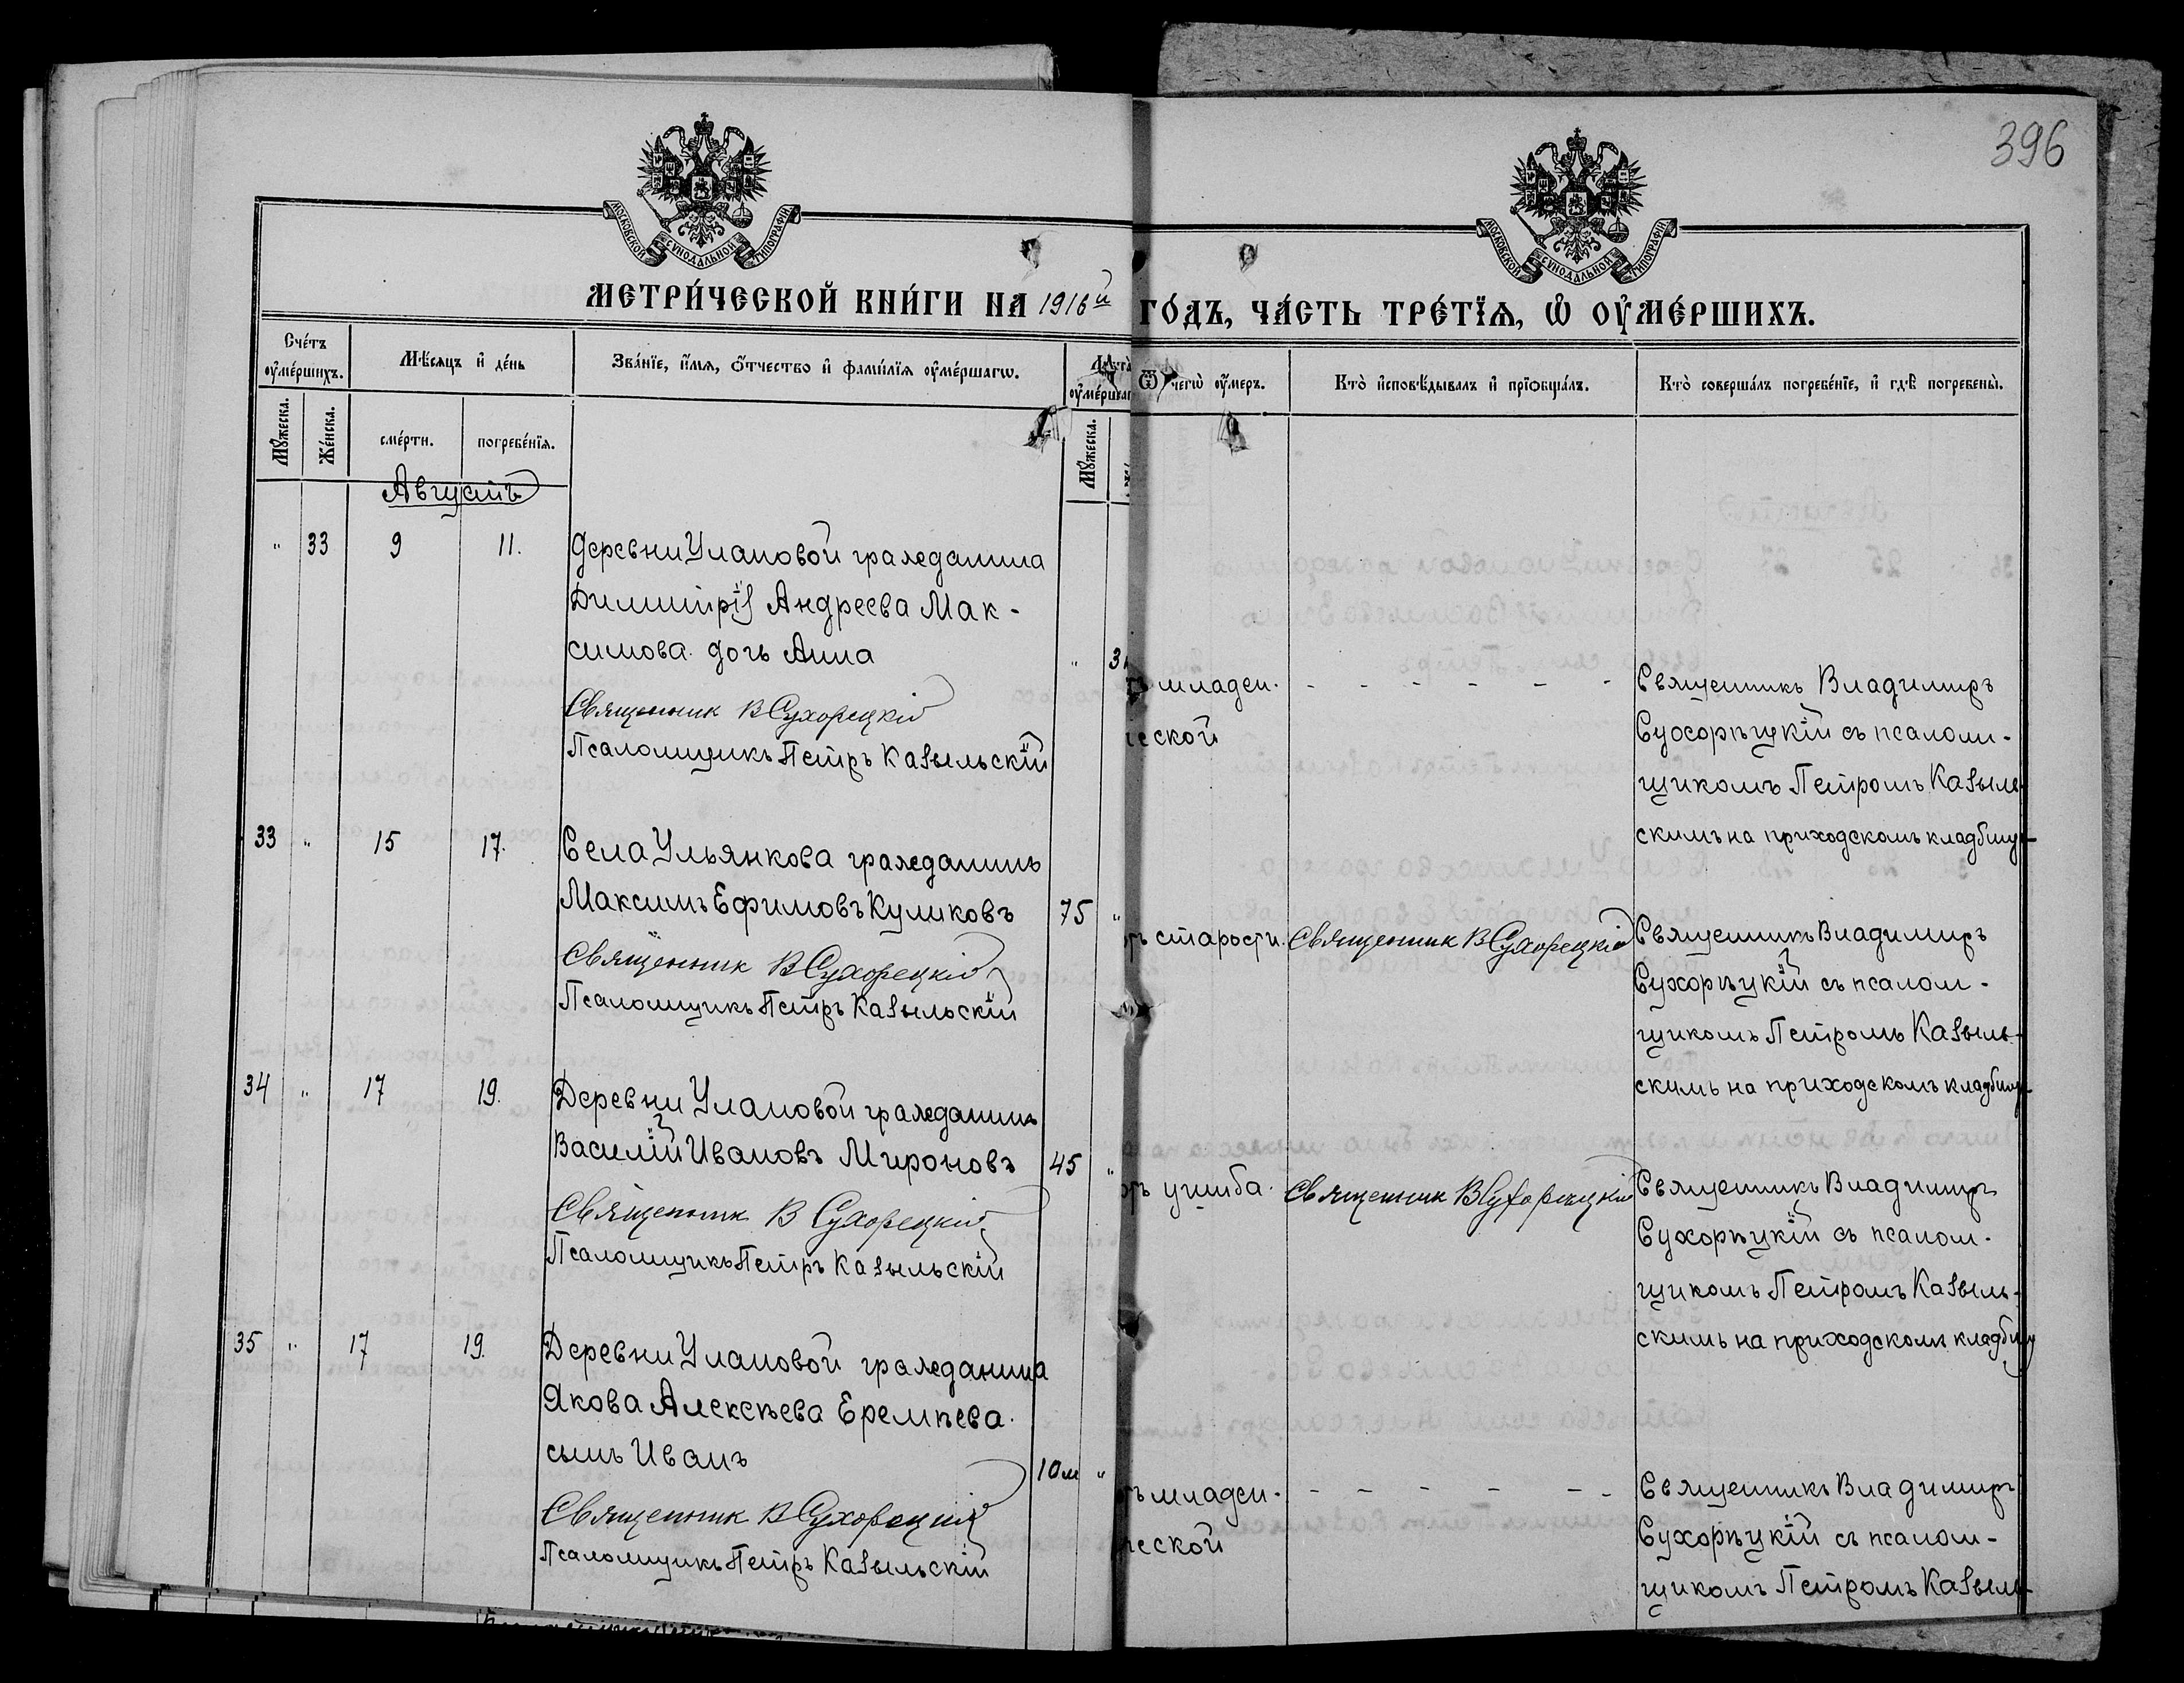 396
МОСКОВСКОЙ СѴНОДАЛЬНОЙ ТИПОГРАФІИ
МОСКОВСКОЙ СѴНОДАЛЬНОЙ ТИПОГРАФІИ
МЕТРИ́ЧЕСКОЙ КНИ́ГИ НА 1916й ГО́ДЪ, ЧА́СТЬ ТРЕ́ТЇѦ, Ѡ҆ ОУ҆МЕ́РШИХЪ.
Сче́тъ оу҆ме́ршихъ.
Мꙋ́жеска.
Же́нска.
Мѣ́сѧцъ и҆ де́нь
сме́рти.
погребе́нїѧ.
Зва́нїе, и҆́мѧ, ѻ҆́тчество и҆ фами́лїѧ оу҆ме́ршагѡ.
Лѣ́та
Мꙋ́жеска.
Ѿ чегѡ̀ оу҆́меръ.
Кто̀ и҆сповѣ́дывалъ и҆ прїѻбща́лъ.
Кто̀ соверша́лъ погребе́нїе, и҆ гдѣ̀ погребены̀.
Августъ
" 33 9 11.
Деревни Улановой гражданина
Димитрія Андреева Мак-
симова дочь Анна
"
Священник В Сухорецкій
Псаломщикъ Петръ Казыльскій
младен-
ской
Священникъ Владимиръ
Сухорѣцкій съ псалом-
щикомъ Петромъ Казыль-
скимъ на приходскомъ кладбищѣ
33 " 15 17.
Села Ульянкова гражданинъ
Максимъ Ефимовъ Куликовъ
75 "
Священник В Сухорецкій
Псаломщикъ Петръ Казыльскій
старости.
Священник В Сухорецкій
Священникъ Владимиръ
Сухорѣцкій съ псалом-
щикомъ Петромъ Казыль-
скимъ на приходскомъ кладбищѣ
34 " 17 19.
Деревни Улановой гражданинъ
Василій Ивановъ Мироновъ
45 "
Священник В Сухорецкій
Псаломщикъ Петръ Казыльскій
ушиба.
Священник В Сухорецкій
Священникъ Владимиръ
Сухорѣцкій съ псалом-
щикомъ Петромъ Казыль-
скимъ на приходскомъ кладбищ
35 " 17 19.
Деревни Улановой гражданина
Якова Алексѣева Еремѣева
сынъ Иванъ
10 м "
Священник В Сухорецкій
Псаломщикъ Петръ Казыльскій
младен-
ческой
Священникъ Владимиръ
Сухорѣцкій съ псалом-
щикомъ Петромъ Казыль-